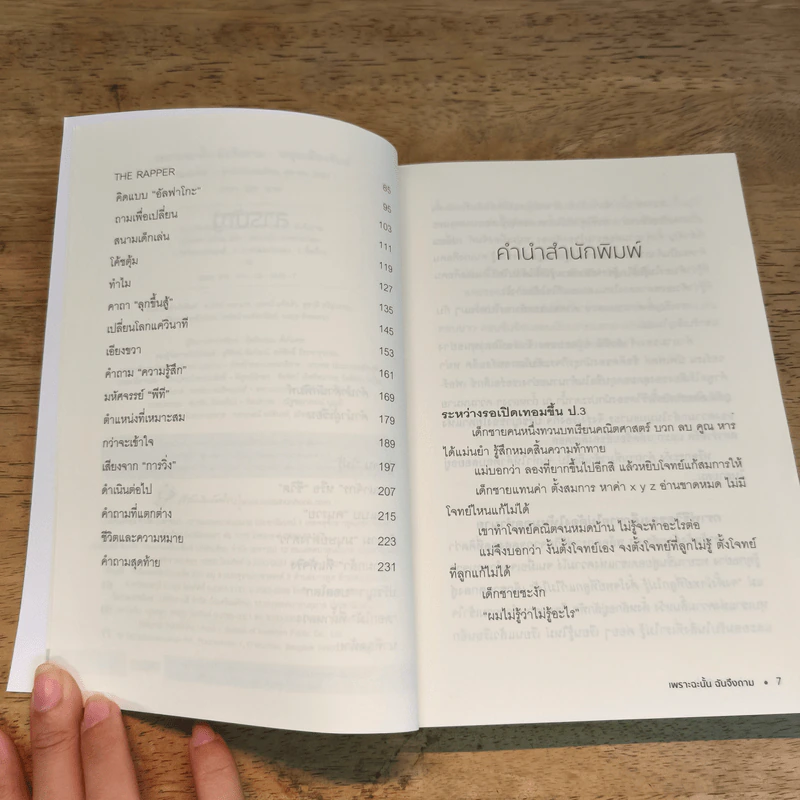 THE RAPPER 85
คิดแบบ "อัลฟาโกะ" 95
ถามเพื่อเปลี่ยน 103
สนามเด็กเล่น 111
โค้ชตุ้ม 119
ทำไม 127
คาถา "ลุกขึ้นสู้" 135
เปลี่ยนโลกแค่วินาที 145
เอียงขวา 153
คำถาม "ความรู้สึก" 161
มหัศจรรย์ "พีที" 169
ตำแหน่งที่เหมาะสม 179
กว่าจะเข้าใจ 189
เสียงจาก "การวิ่ง" 197
ดำเนินต่อไป 207
คำถามที่แตกต่าง 215
ชีวิตและความหมาย 223
คำถามสุดท้าย 231
คำนำสำนักพิมพ์
ระหว่างรอเปิดเทอมขึ้น ป.3
เด็กชายคนหนึ่งทวนบทเรียนคณิตศาสตร์ บวก ลบ คูณ หาร
ได้แม่นยำ รู้สึกหมดสิ้นความท้าทาย
แม่บอกว่า ลองที่ยากขึ้นไปอีกสิ แล้วหยิบโจทย์แก้สมการให้
เด็กชายแทนค่า ตั้งสมการ หาค่า x y z อ่านขาดหมด ไม่มี
โจทย์ไหนแก้ไม่ได้
เขาทำโจทย์คณิตจนหมดบ้าน ไม่รู้จะทำอะไรต่อ
แม่จึงบอกว่า งั้นตั้งโจทย์เอง จงตั้งโจทย์ที่ลูกไม่รู้ ตั้งโจทย์
ที่ลูกแก้ไม่ได้
เด็กชายชะงัก
"ผมไม่รู้ว่าไม่รู้อะไร"
เพราะฉะนั้น ฉันจึงถาม • 7